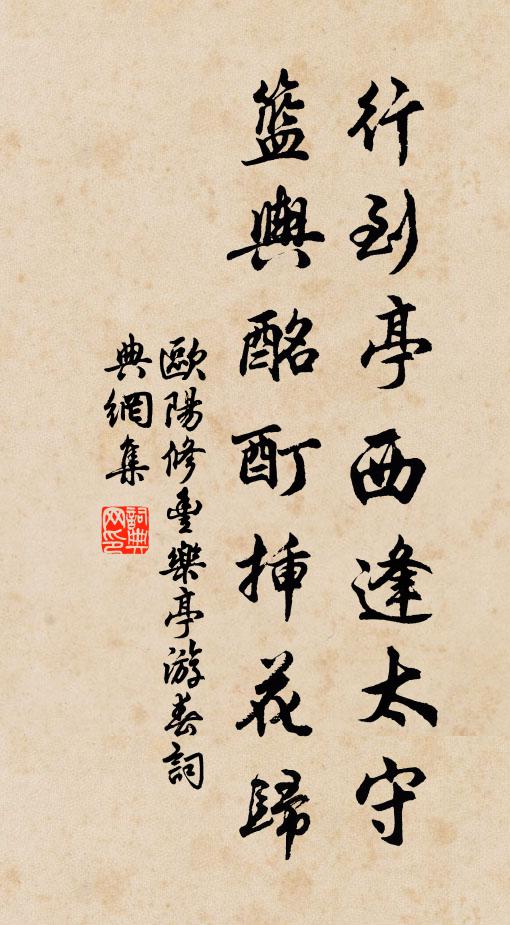 行到亭西逢太守
籃輿酩酊插花歸
歐陽修豐樂亭游春詞
典網集
詞典网印